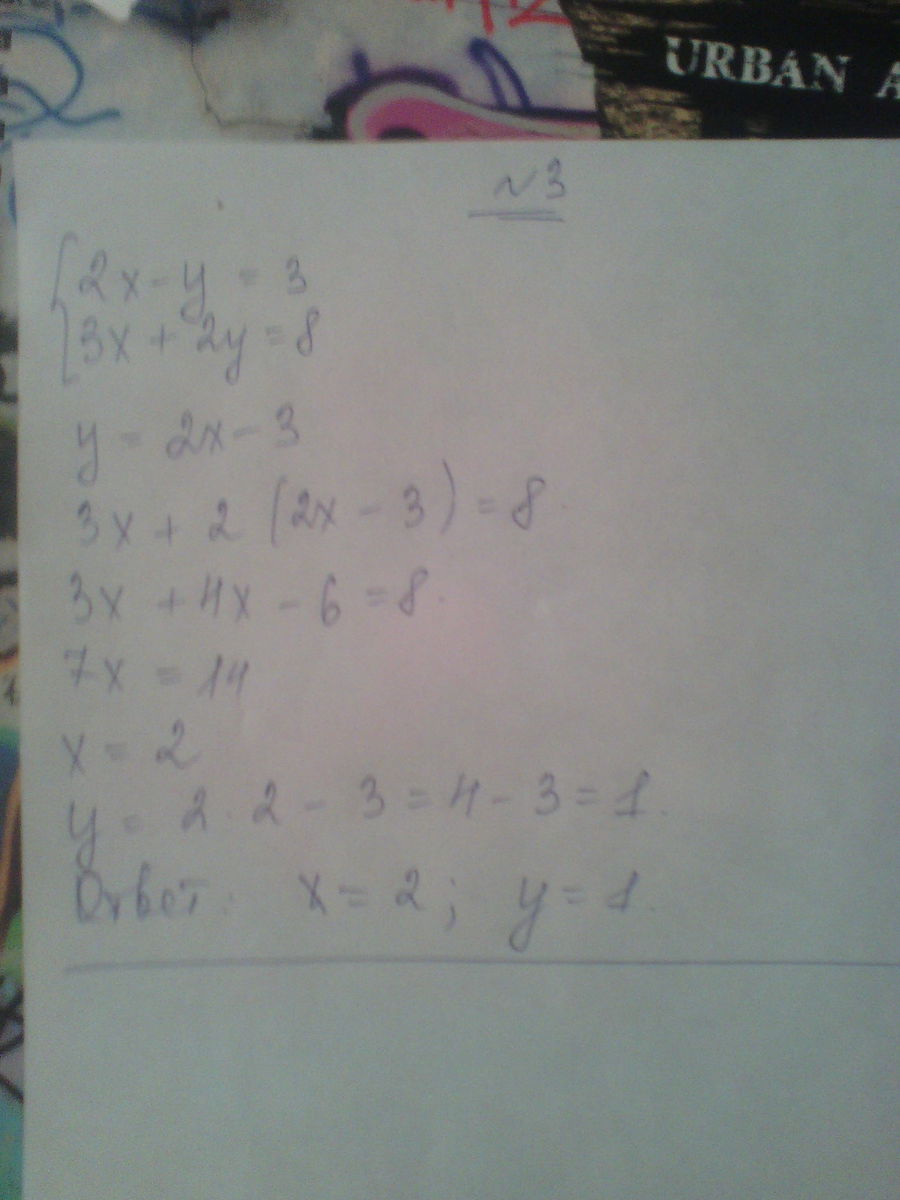 URBAN A
№3
2x - y = 3
3x + 2y = 8
y = 2x - 3
3x + 2 (2x - 3) = 8
3x + 4x - 6 = 8.
7x = 14
x = 2
y = 2 · 2 - 3 = 4 - 3 = 1.
Ответ: x = 2; y = 1.